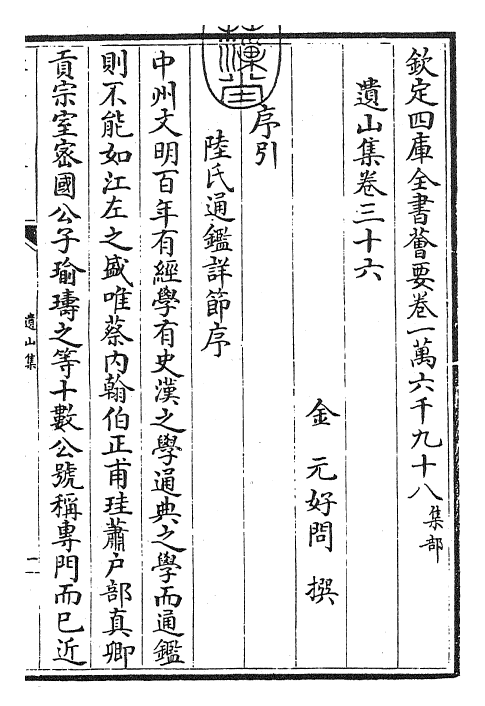 欽定四庫全書薈要卷一萬六千九十八集部
遺山集卷三十六
金元好問撰
序引
陸氏通鑑詳節序
中州文明百年有經學有史漢之學通典之學而通鑑
則不能如江左之盛唯蔡内翰伯正甫珪蕭户部真卿
貢宗室密國公子瑜璹之等十數公號稱專門而已近
遺山集
一